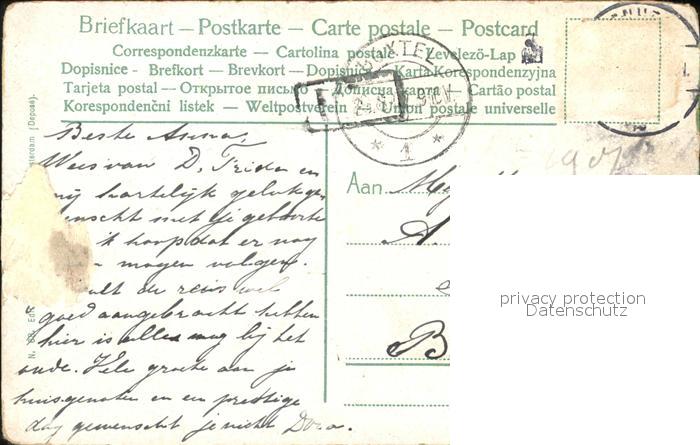 Briefkaart — Postkarte — Carte postale — Postcard
Correspondenzkarte — Cartolina postale — Levelezö-Lap
Dopisnice - Brefkort — Brevkort — Dopisnice Karta Korespondenzyjna
Tarjeta postal — Открытое письмо — Дописна карта — Cartão postal
Korespondenční listek — Weltpostverein — Union postale universelle
BOXTEL
* 1 *
Beste Anna,
Wees van D, Frida en
mij hartelijk geluk
wenscht met je geboorte
ik hoop dat er nog
mogen volgen.
de reis wel
goed aangebracht hebben
hier is alles nog bij het
oude. Vele groete aan je
huisgenoten en een prettige
dag gewenscht je nicht Dora.
Aan
A.
B
N. Edit
Amsterdam (Deposé).
1907
privacy protection
Datenschutz